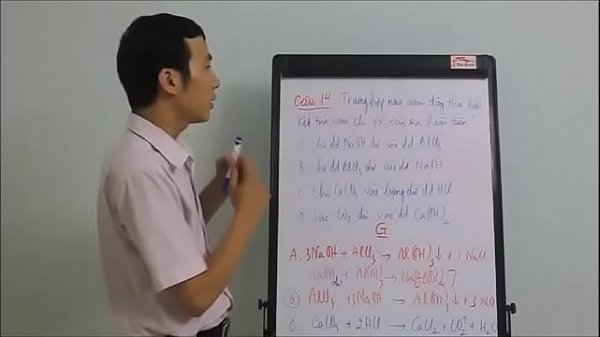 Câu 14 Trường hợp nào sau đây thu được
kết tủa sau khi pứ xảy ra hoàn toàn?
Cho dd NaOH dư vào dd AlCl3
B. Cho dd AlCl3 dư vào dd NaOH
C. Cho CaCO3 vào lượng dư dd HCl
Sục CO2 dư vào dd Ca(OH)2
G
A. 3NaOH + AlCl3 → Al(OH)3↓ + 3NaCl
NaOH dư + Al(OH)3 → Na[Al(OH)4]
B AlCl3 + 3NaOH → Al(OH)3↓ + 3NaCl
C. CaCO3 + 2HCl → CaCl2 + CO2↑ + H2O